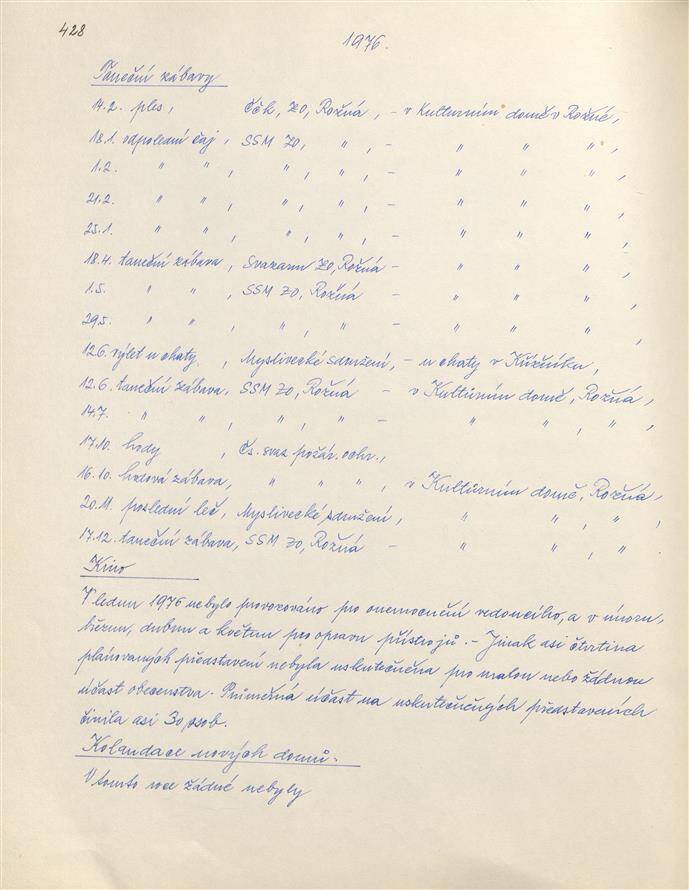 428
1976.
Taneční zábavy
14.2. ples, Ččk, ZO, Rožná, – v Kulturním domě v Rožné,
18.1. odpolední čaj, SSM ZO, " , – " " " ,
1.2. " " , " , " , – " " " ,
21.2. " " , " , " , – " " " ,
25.1. " " , " , " , – " " " ,
18.4. taneční zábava, Svazarm ZO, Rožná – " " " ,
1.5. " " , SSM ZO, Rožná – " " " ,
29.5. " " , " , " – " " " ,
12.6. výlet u chaty , Myslivecké sdružení, – u chaty v
12.6. taneční zábava, SSM ZO, Rožná – v Kulturním domě, Rožná,
14.7. " " , " , " – " " , " ,
17.10. hody , Čs. svaz požár. ochr.,
16.10. hodová zábava, " " " , v Kulturním domě, Rožná,
20.11. poslední leč, Myslivecké sdružení, " " , " ,
17.12. taneční zábava, SSM ZO, Rožná – " " , " .
Kino
V lednu 1976 nebylo provozováno pro onemocnění vedoucího, a v únoru,
březnu, dubnu a květnu pro opravu přístrojů. – Jinak asi čtvrtina
plánovaných představení nebyla uskutečněna pro malou nebo žádnou
účast obecenstva. Průměrná účast na uskutečněných představeních
činila asi 30 osob.
Kolaudace nových domů.
V tomto roce žádné nebyly